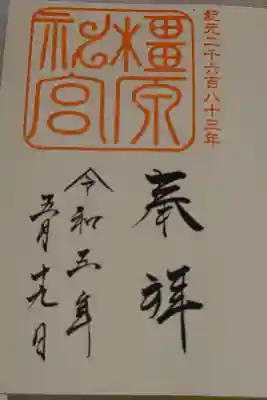 紀元二千六百八十三年
橿原
神宮
奉拝
令和五年
五月十九日